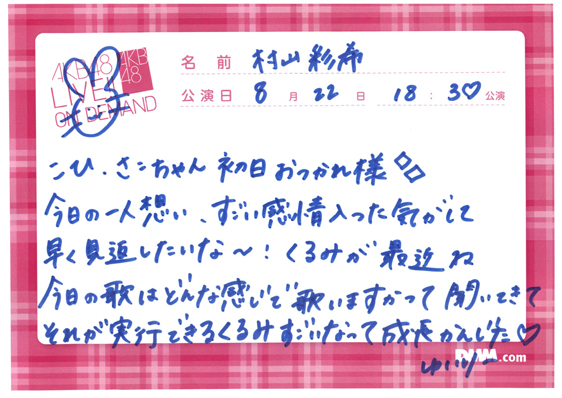 AKB48
LIVE!!
ON DEMAND
AKB
48
名前 村山彩希
公演日 8月22日 18:30公演
こひ、さこちゃん 初日おつかれ様
今日の一人想い、すごい感情入った気がして
早く見返したいな〜！くるみが最近ね
今日の歌はどんな感じで歌いますかって聞いてきて
それが実行できるくるみすごいなって成長かんじた♡
DMM.com
ゆいりー